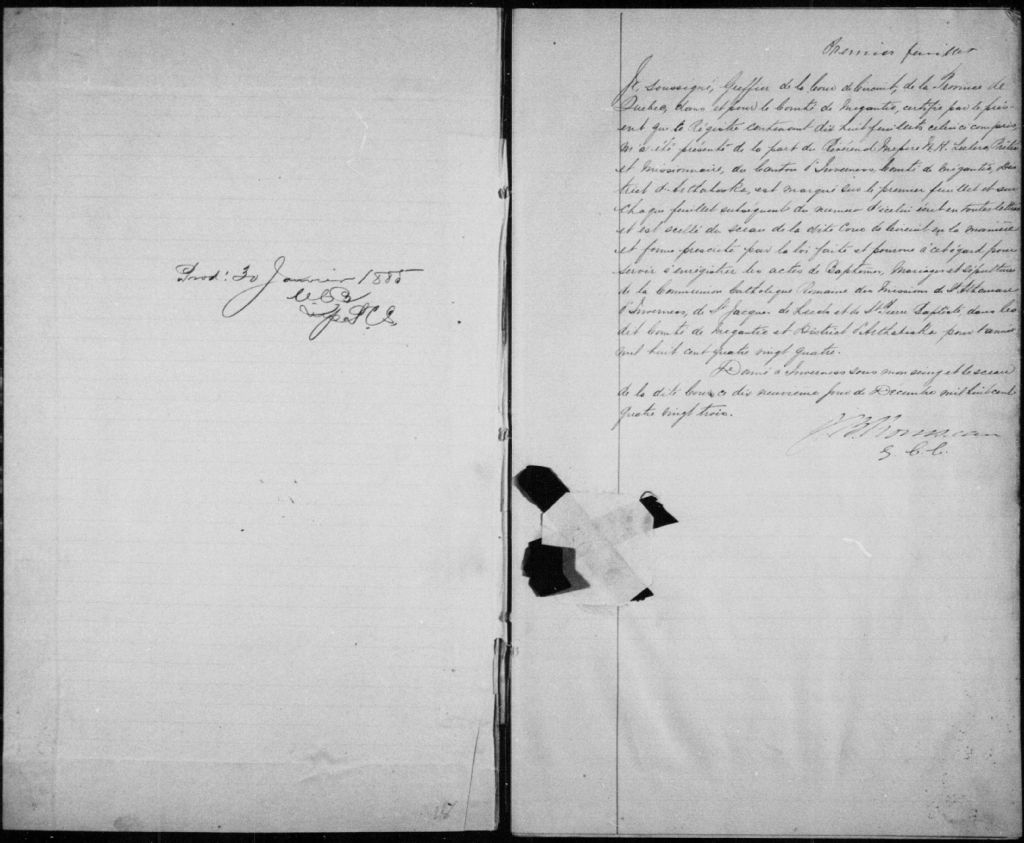 Prod: 30 Janvier 1885
Premier feuillet
Je, soussigné, Greffier de la Cour de Circuit, de la Province de
Quebec, dans et pour le Comté de Megantic, certifie par le prés-
ent que le Régistre contenant dix huit feuillets celui ci compris,
m'a été présenté de la part du Révérend Messire Leclerc, Prêtre
et Missionnaire, du Canton d'Inverness, Comté de Mégantic, Dis-
trict d'Arthabaska, est marqué sur le premier feuillet et sur
Chaque feuillet subséquent du numero d'icelui écrit en toutes lettres
et est scellé du sceau de la dite Cour de Circuit en la manière
et forme prescrite par la loi faite et pourvue à cet égard pour
servir à enrégistrer les actes de Baptêmes, Mariages et Sépultures
de la Communion Catholique Romaine des Missions de St Athanase
d'Inverness, de St Jacques de Leeds et de St Pierre Baptiste, dans les
dit Comté de Megantic et District d'Arthabaska pour l'année
mil huit cent quatre vingt quatre.
Donné à Inverness sous mon seing et le sceau
de la dite Cour, ce dix neuvième jour de Decembre mil huit cent
quatre vingt trois.
G. C. C.